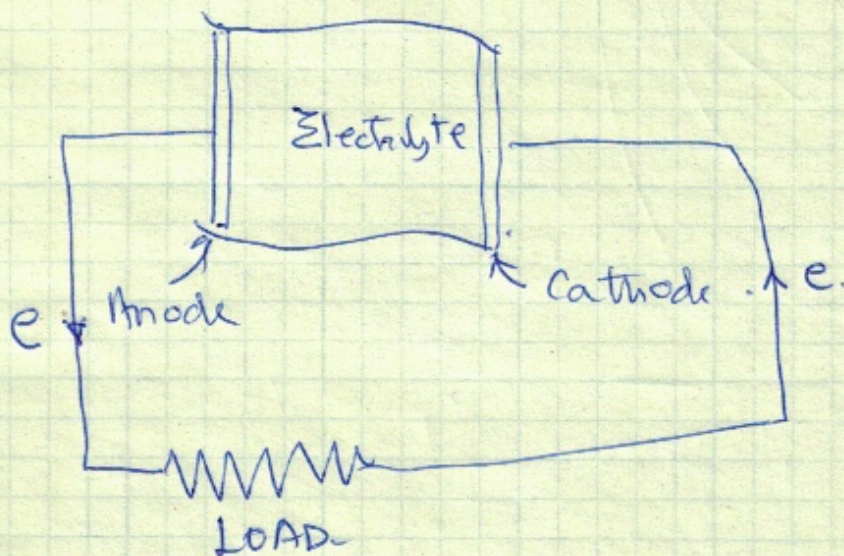 Electrilyte
Anode
Cathode
e
e.
LOAD